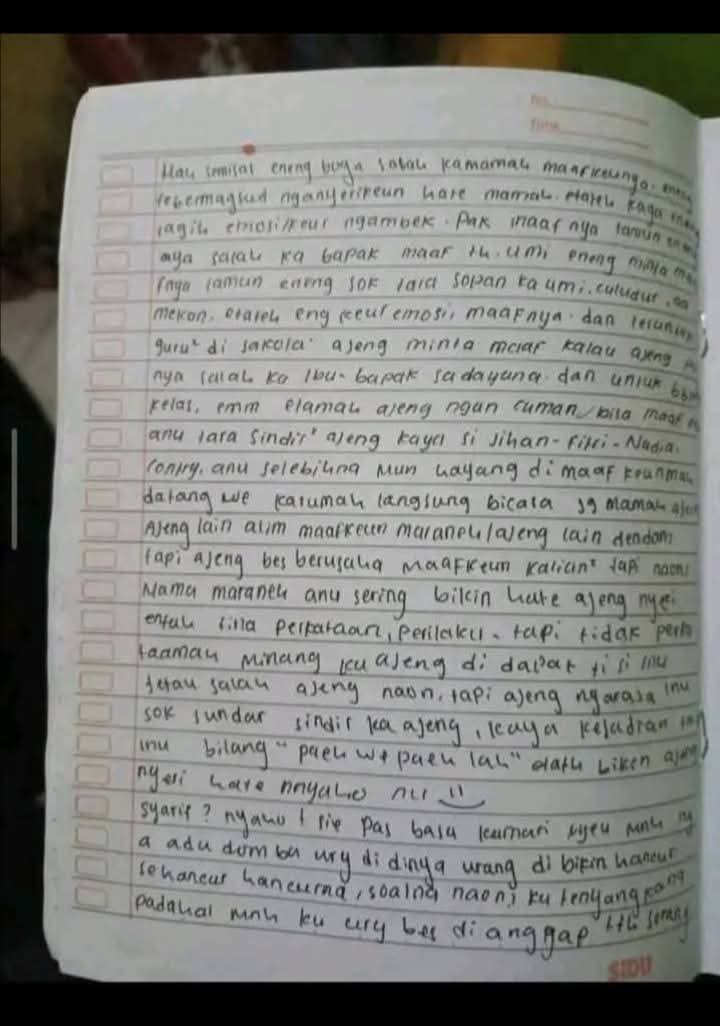 No.
Date
Mau semisal eneng boga salah kamamah maafkeunya. eneng
tebermagsud nganyerikeun hate mamah. etateh kaga
lagih emosi/keur ngambek. Pak maaf nya lamun
aya salah ka bapak maaf th. umi eneng minta
nya lamun eneng sok tara sopan ka umi. culudur,
etateh eng keur emosi, maafnya. dan teruntuk
guru² di sakola. ajeng minta maaf kalau ajeng
nya salah ka Ibu-bapak sadayana. dan untuk
kelas, emm elamah ajeng ngan cuman bisa maaf
anu tara sindir² ajeng kaya si Jihan-Fikri-Nadia.
anu selebihna mun hayang di maafkeunmah
datang we karumah langsung bicara sg mamah
Ajeng lain alim maafkeun maraneh/ajeng lain dendam
tapi ajeng bes berusaha maafkeun kalian² tapi naon
Nama maraneh anu sering bikin hate ajeng nyeri
entah tina perkataan, perilaku. tapi tidak
taamah minang ku ajeng di dapat ti si inu
tetau salah ajeng naon, tapi ajeng ngarasa inu
sok sundar sindir ka ajeng, kaya kejadian
inu bilang "paeh we paeh lah" etath biken
nyeri hate nnyaho nu :)
syarif? nyaho t sie pas basa kamari nyeu mnh
a adu domba ury di dinya urang di bikin hancur
sehancur hancurna, soalna naon; ku
padahal mnh ku ury bes di anggap
SIDU